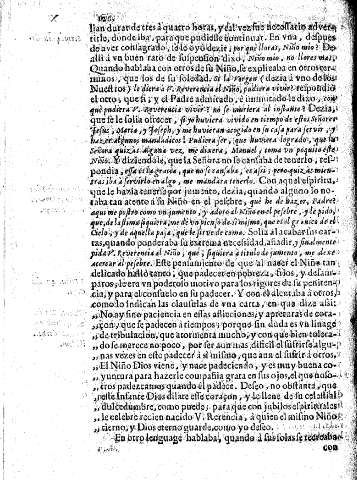 llan durar de tres à quatro horas, y tal vez fue necessario adver-
tirle, donde iba, para que pudiesse continuar. En vna, despues
de aver consagrado, se le oyò dezir: por què lloras, Niño mio? De
alli à vn buen rato de suspension dixo, Niño mio, no llores mas.
Quando hablaba con otros de su Niño, se explicaba en otros ter-
minos, que los de su soledad. Si la Virgen (dezia à vno de los
Nuestros) le diera à V. Reverencia el Niño, pudiera vivir? respondiò
el otro, que si; y el Padre admirado, è inmutado le dixo,
què pudiera V. Reverencia vivir? no se muriera al instante? Dezia,
que se le solia ofrecer, si yo huviera vivido en tiempo de estos Señores
Jesus, Maria, y Joseph, y me huvieran acogido en su casa para servir, y
hazer algunos mandadicos? Pudiera ser, que huviera logrado, que la
Señora quizàs alguna vez, me dixera, Manuel, toma vn poquito este
Niño. Y diziendole, que la Señora no se cansaba de tenerlo, res-
pondia, esso es la gracia, que no se cansaba, es assi; pero quizàs mien-
tras iba à servirlo en algo, me mandara tenerlo. Con aquel espiritu,
que le havia tenerlo por jumento, dezia, quando alguno lo no-
taba tan atento à su Niño en el pesebre, què he de hazer, Padre?
aqui me postro como vn jumento, y adoro al Niño en el pesebre, y le pido,
que, de lastima siquiera, me de vn pienso de si mismo, que es el grano de el
Cielo, y de aquella paja, que le sirve de cama. Solia al acabar sus car-
tas, quando ponderaba su extrema necessidad, añadir, y finalmente
pida V. Reverencia al Niño, que siquiera à titulo de jumento, me dexe
acercar al pesebre. Este pensamiento de que al nacer el Niño tan
delicado hallò tanto, que padecer en pobreza, frios, y desam-
paros, le era vn poderoso motivo para los rigores de su peniten-
cia, y para el consuelo en su padecer. Y con èl alentaba à otros,
como lo indican las clausulas de vna carta, en que dize assi:
„ No ay sino paciencia en essas aflicciones, y aprietos de cora-
„ çon, que se padecen à tiempos; porque sin duda es vn linage
„ de tribulacion, que atormenta mucho, y con que bien tolera-
„ do se merece no poco, por ser mas dificil el sufrirse algu-
„ nas vezes en este padecer à si mismo, que aun el sufrir à otros.
„ El Niño Dios viene, y nace padeciendo, y es muy buena co-
„ yuntura para hazerle compañia grata en sus ojos, el que noso-
„ tros padezcamos quando èl padece. Deseo, no obstante, que
„ este Infante Dios dilate esse coraçon, y le llene de su celestial
„ dulcedumbre, como puede; para que con jubilos espirituales
„ le celebre recien nacido V. Reverencia, à quien el mismo Niño
„ tierno, y Dios eterno guarde, como yo deseo.
En otro lenguage hablaba, quando à sus solas se recreaba
con